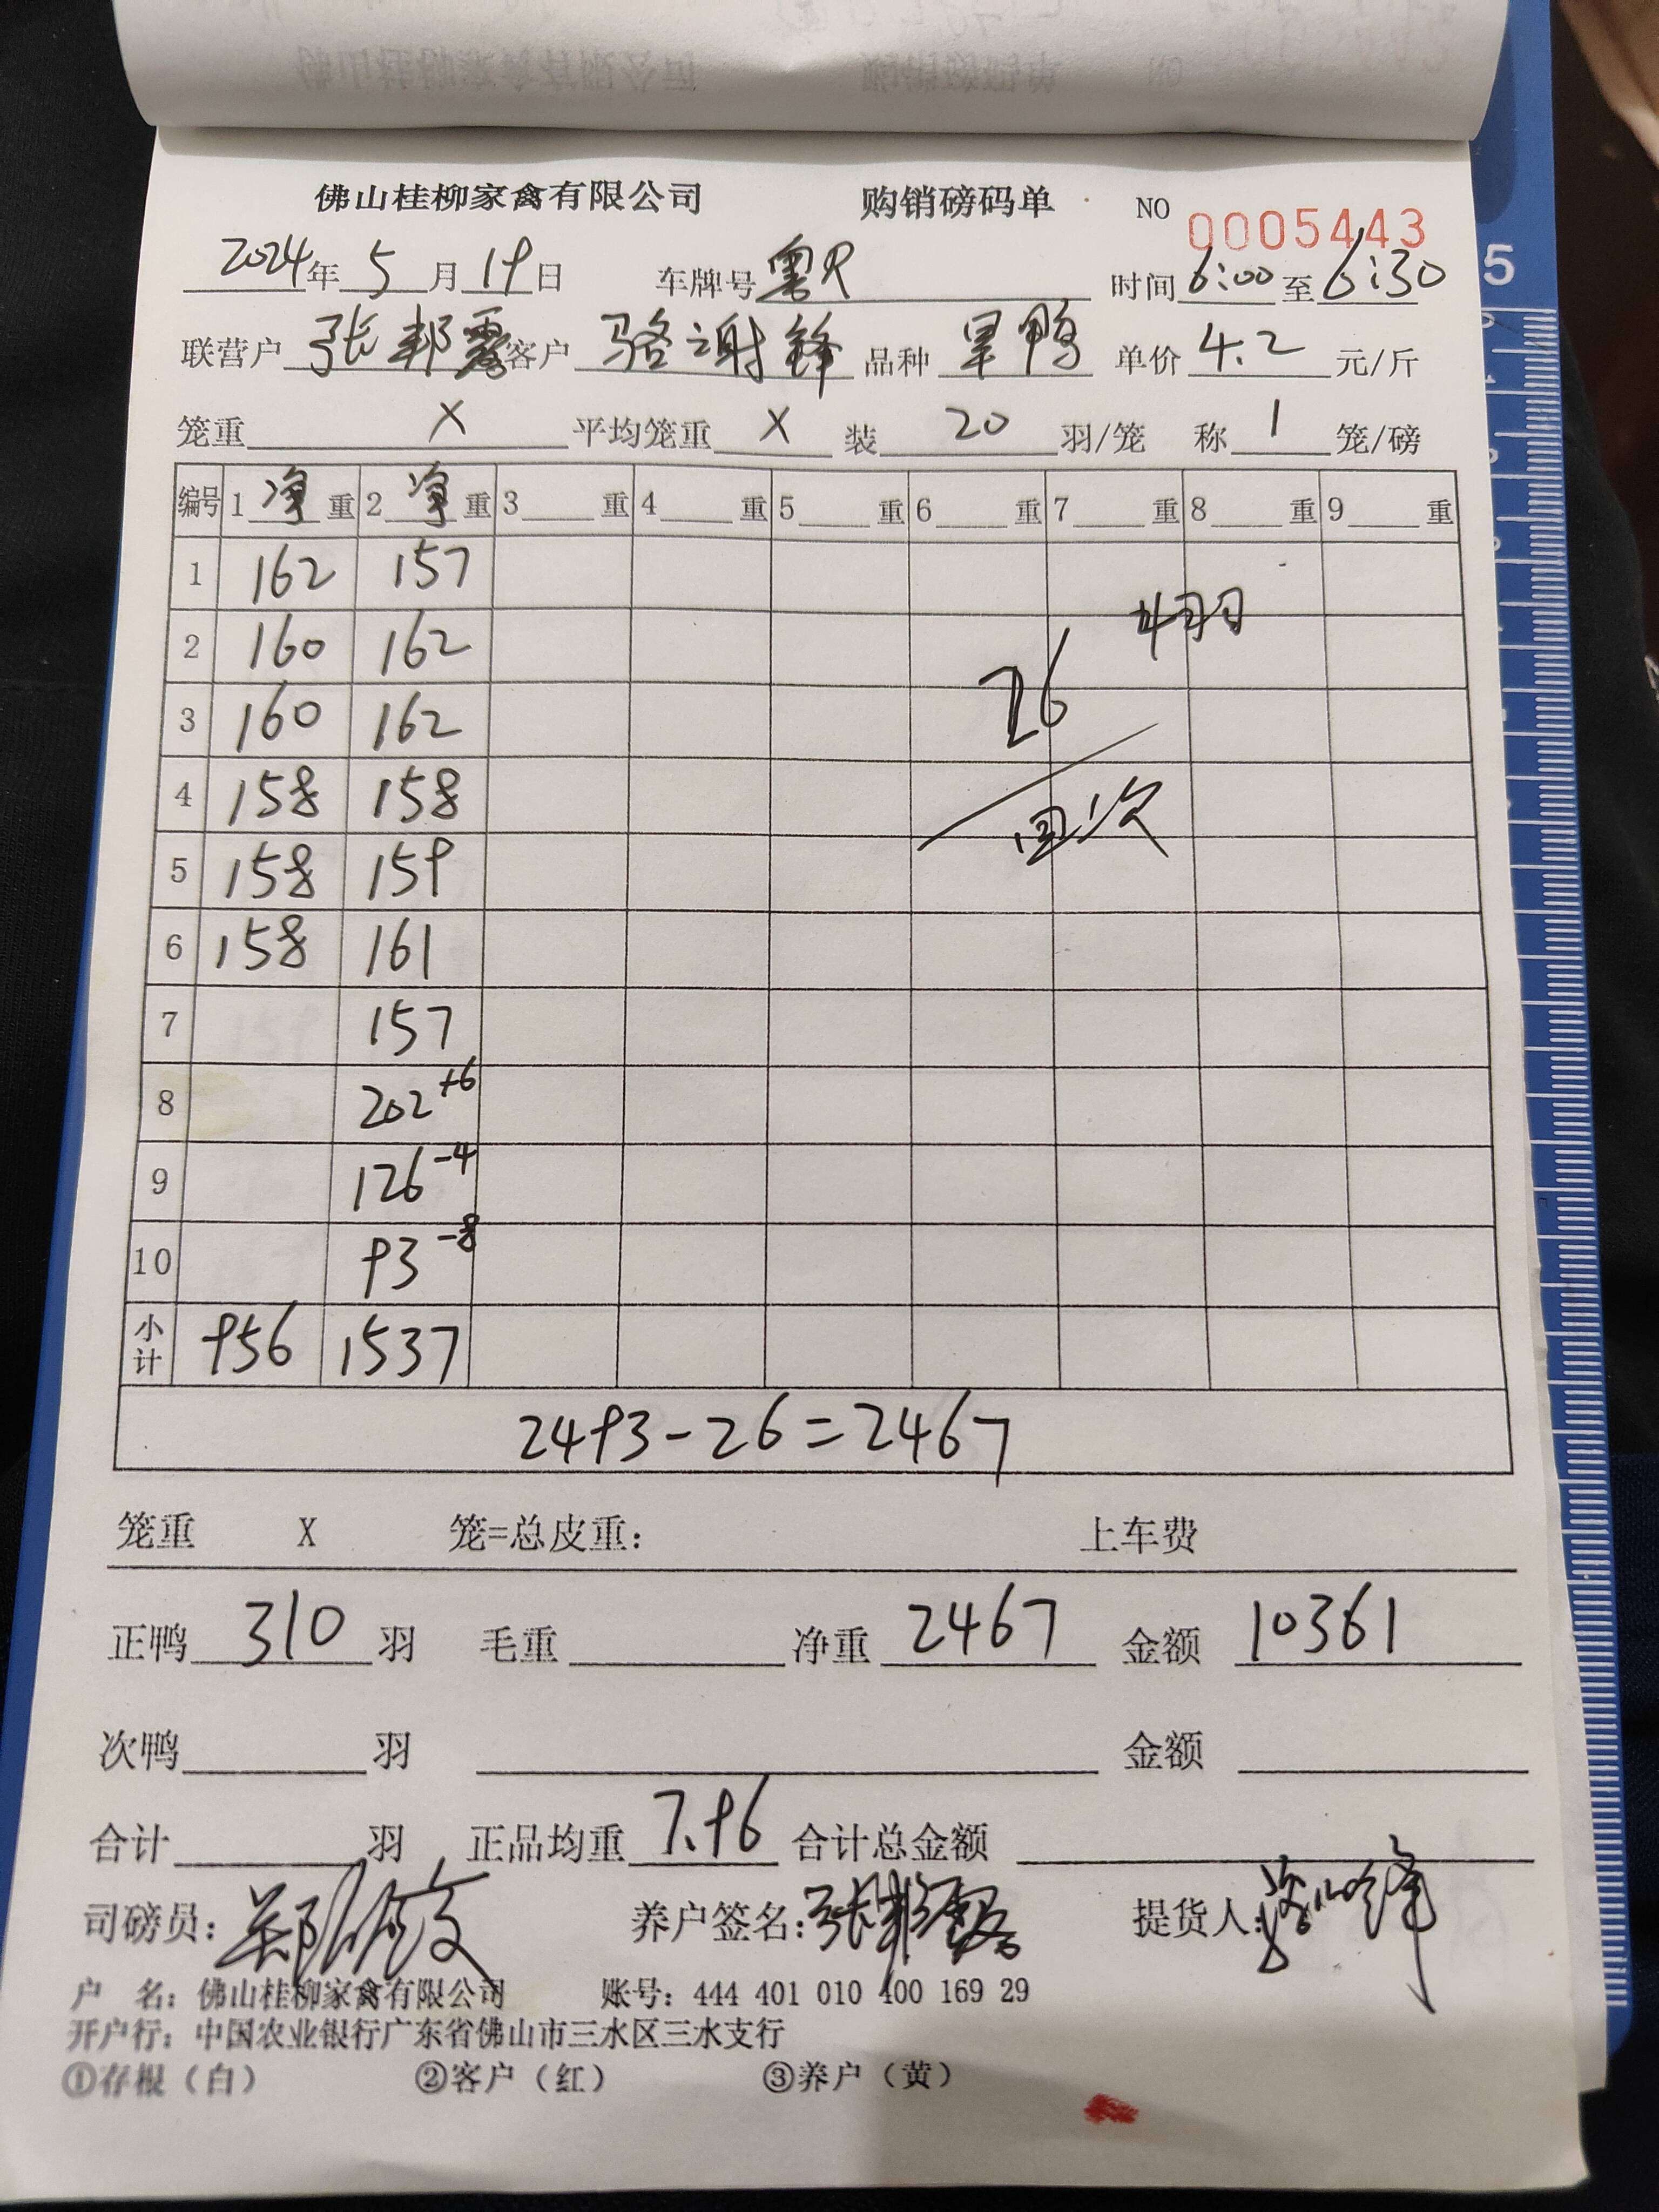 佛山桂柳家禽有限公司 购销磅码单 NO 0005443
2024年5月19日 车牌号 粤R 时间 6:00 至 6:30
联营户 张邦露 客户 骆谢锋 品种 旱鸭 单价 4.2 元/斤
笼重 X 平均笼重 X 装 20 羽/笼 称 1 笼/磅
编号 1 净 重 2 净 重 3 重 4 重 5 重 6 重 7 重 8 重 9 重
1 162 157
2 160 162 4羽
3 160 162 26
4 158 158 回次
5 158 159
6 158 161
7 157
8 202 +6
9 126 -4
10 93 -8
小计 956 1537
2493-26=2467
笼重 X 笼=总皮重: 上车费
正鸭 310 羽 毛重 净重 2467 金额 10361
次鸭 羽 金额
合计 羽 正品均重 7.96 合计总金额
司磅员: 养户签名: 张邦露 提货人:
户 名: 佛山桂柳家禽有限公司 账号: 444 401 010 400 169 29
开户行: 中国农业银行广东省佛山市三水区三水支行
①存根（白） ②客户（红） ③养户（黄）
5